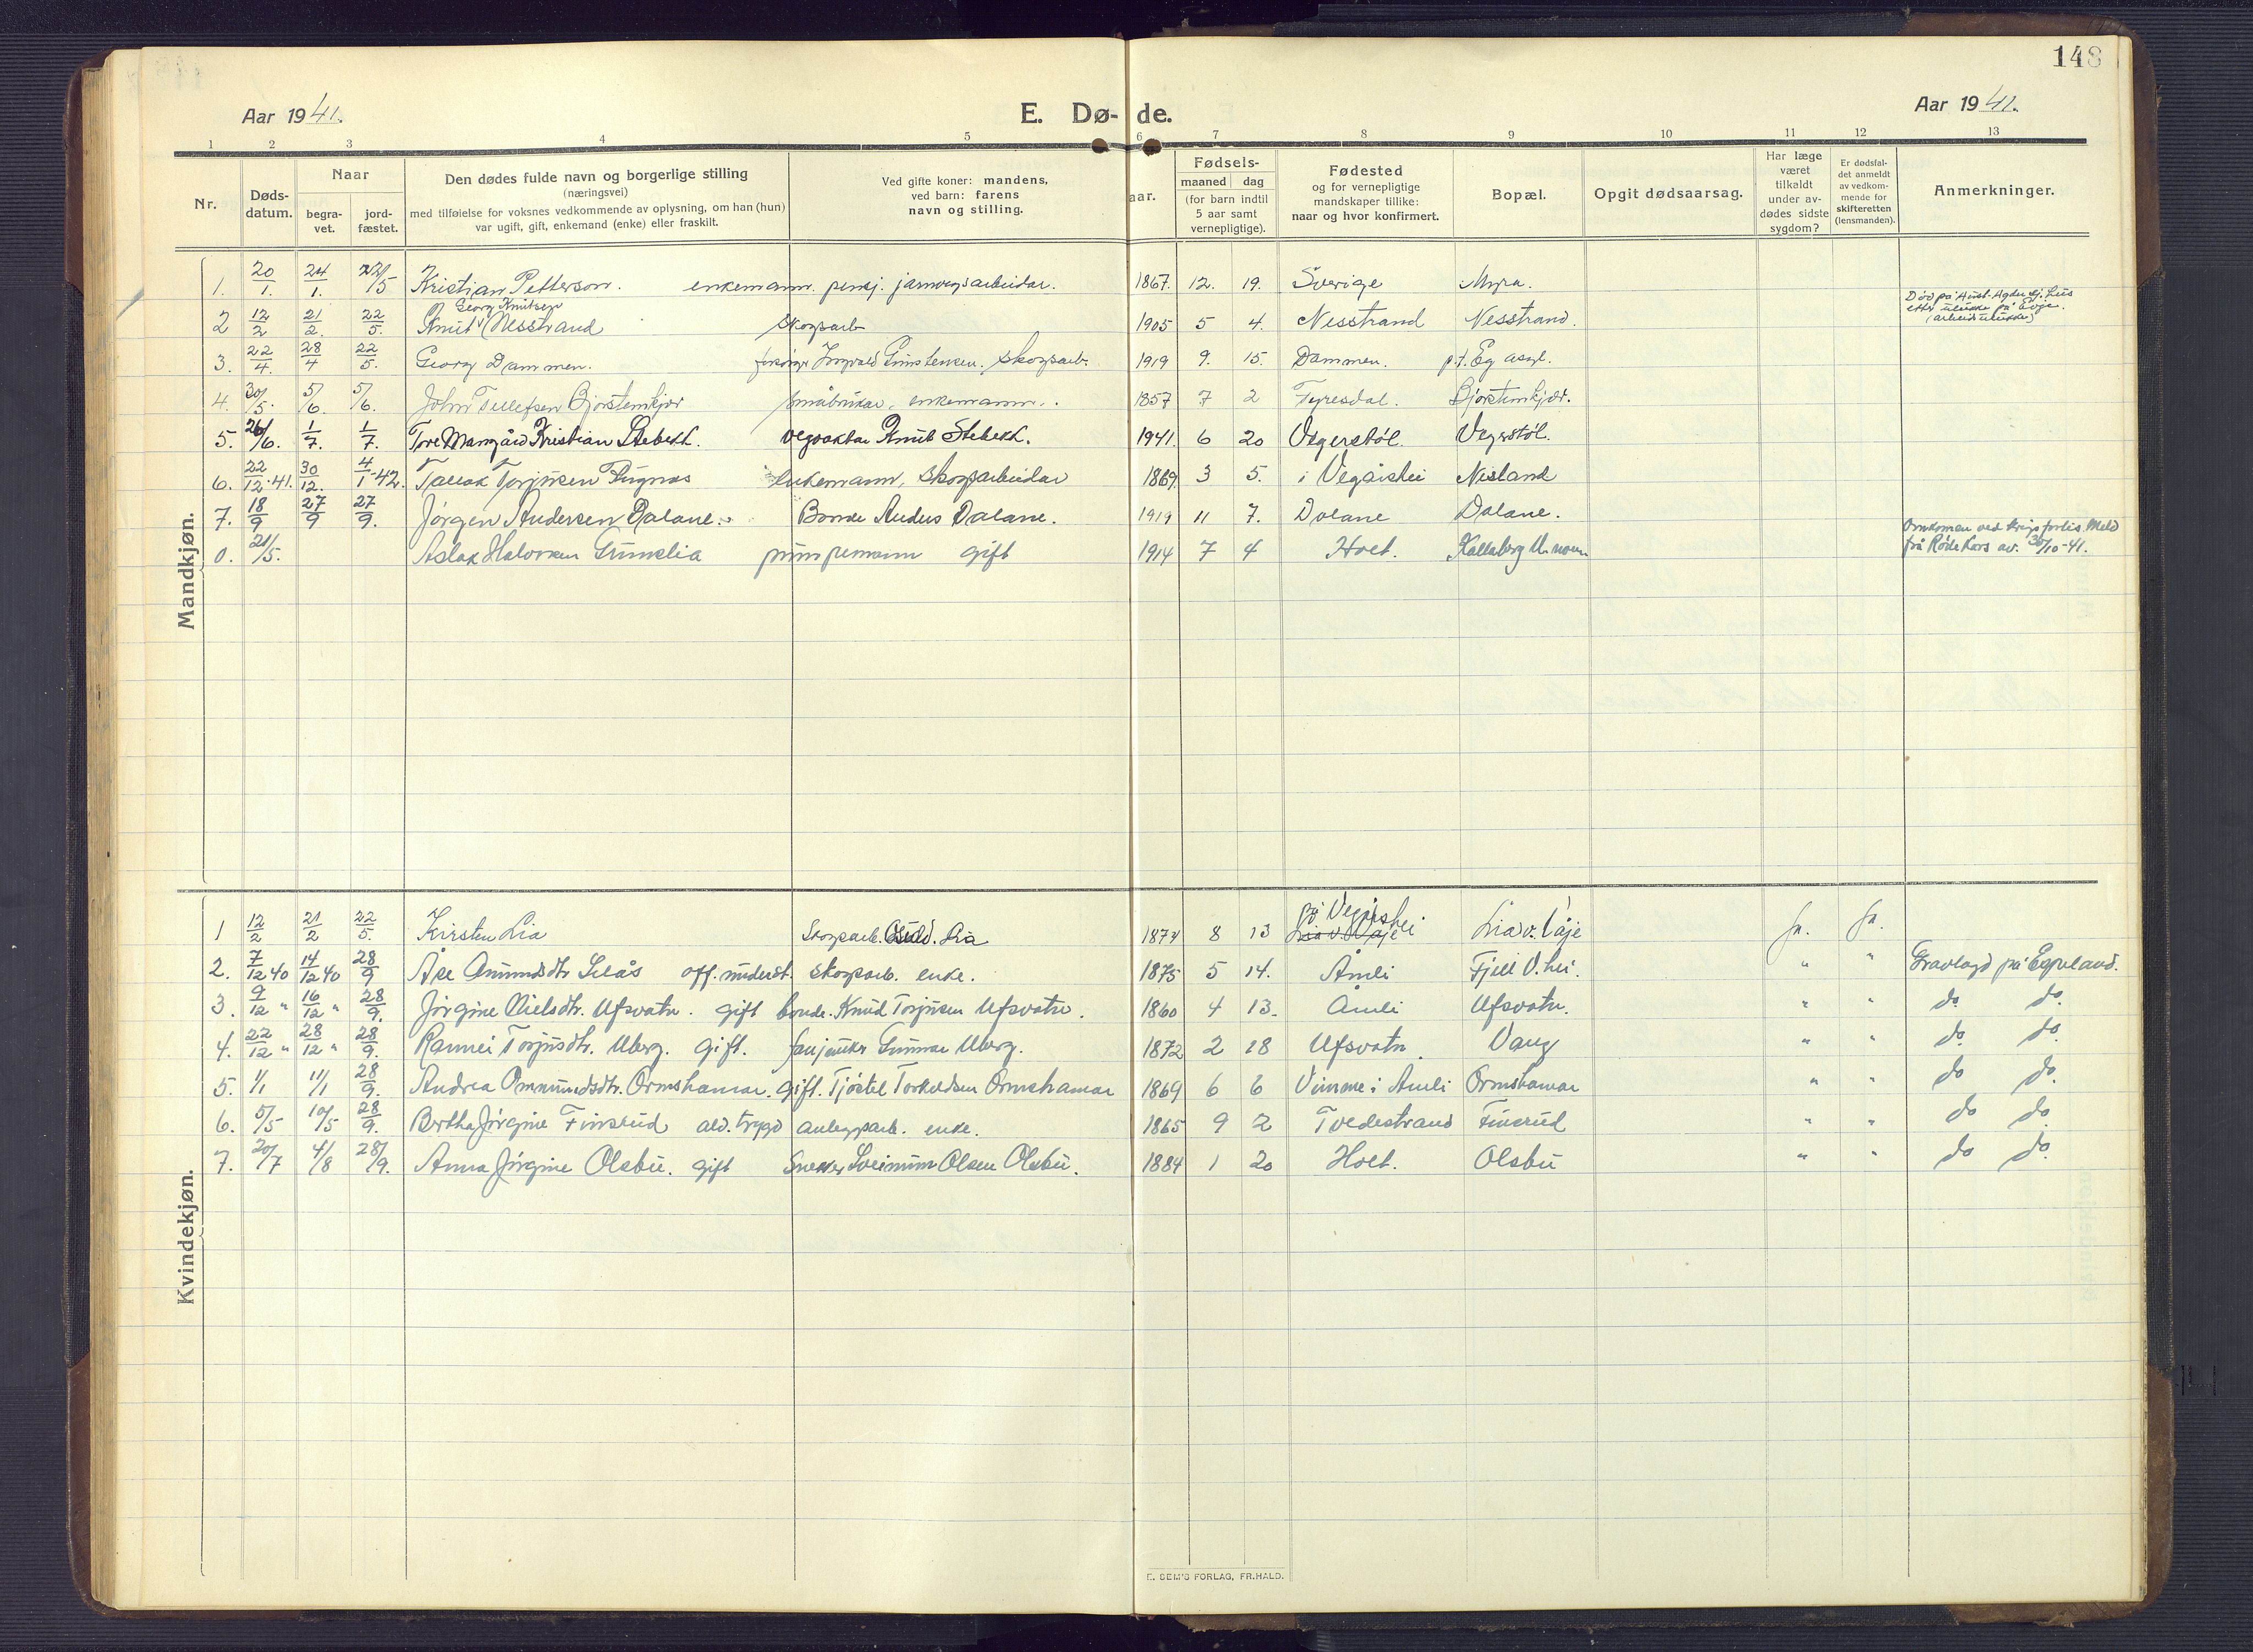 148
Aar 1941. E. Dø- de. Aar 1941.
1 2 3 4 5 6 7 8 9 10 11 12 13
Nr.
Døds-
datum.
Naar
begra-
vet.
jord-
fæstet.
Den dødes fulde navn og borgerlige stilling
(næringsvei)
med tilføielse for voksnes vedkommende av oplysning, om han (hun)
var ugift, gift, enkemand (enke) eller fraskilt.
Ved gifte koner: mandens,
ved barn: farens
navn og stilling.
aar.
Fødsels-
maaned dag
(for barn indtil
5 aar samt
vernepligtige).
Fødested
og for vernepligtige
mandskaper tillike:
naar og hvor konfirmert.
Bopæl.
Opgit dødsaarsag.
Har læge
været
tilkaldt
under av-
dødes sidste
sygdom?
Er dødsfal-
det anmeldt
av vedkom-
mende for
skifteretten
(lensmanden).
Anmerkninger.
Mandkjøn.
1. 20/1. 24/1. 22/5 Kristian Petterson. enkemann. pensj. jarnvegsarbeidar. 1867. 12. 19. Sverige Myra.
Georg Knutsen
2 12/2 21/2. 22/5. Knut Nesstrand skogsarb. 1905 5 4. Nesstrand Nesstrand. Død på Aust-Agder sj.hus
etter ulukke på Evje.
(arbeidsulukke)
3. 22/4. 28/4 22/5. Georg Dammen. skogsarb. 1919 9. 15. Dammen. p.t. Eg asyl.
4. 30/5. 5/6. 5/6. John Tellefsen Bjorstemkjær småbrukar, enkemann. 1857 7 2 Fyresdal. Bjorstemkjær.
5. 26/6. 1/7. 1/7. Tore Mangård Kristian Stebekk. vegvaktar Knut Stebekk. 1941. 6 20 Vegerstøl. Vegerstøl.
6. 22/12-41. 30/12. 4/1-42. Tallak Torjusen Fugnæs enkemann, skogsarbeidar 1869 3 5. i Vegårshei Nesland
7. 18/9 27/9 27/9. Jørgen Andersen Dalane. Bonde Anders Dalane. 1919 11 7. Dalane Dalane.
0. 21/5. Aslak Halvorsen Gunnelia pumpemann gift 1914 7 4 Holt. Omkomen ved krigsforlis. Meld
frå Røde Kors av. 30/10-41.
Kvindekjøn.
1 12/2 21/2 22/5. Kirsten Lia Skogsarb. Lia 1874 8 13 på Vegårshei Lia v. Våje Ja. Ja.
2. 7/12 40 14/12 40 28/9 Åse Amundsdtr. Selås off. underst. skogsarb. enke. 1875 5 14. Åmli Fjell V.hei. " " Gravlagd på Egpeland.
3. 9/12 " 16/12 " 28/9. Jørgine Nielsdtr. Ufsvatn. gift bonde. Knud Torjusen Ufsvatn. 1860 4 13. Åmli Ufsvatn. " " do do.
4. 22/12 " 28/12 " 28/9. Rannei Torjusdtr. Uberg. Gift. Gunnar Uberg. 1872 2 18 Ufsvatn. Vaug " " do do.
5. 1/1 11/1 28/9. Andrea Ommundsdtr. Ormshamar. gift. Tjøstel Torkeldsen Ormshamar 1869 6 6 Vimme i Åmli Ormshamar " " do do.
6. 5/5 10/5 28/9. Bertha Jørgine Finsrud ald. trygd anleggsarb. enke. 1865 9 2 Tvedestrand Finsrud " " do do.
7. 20/7 4/8 28/9. Anna Jørgine Olsbu. gift Snekker Sveinum Olsen Olsbu. 1884 1 20 Holt. Olsbu " " do do.
E. SEM'S FORLAG, FR.HALD.